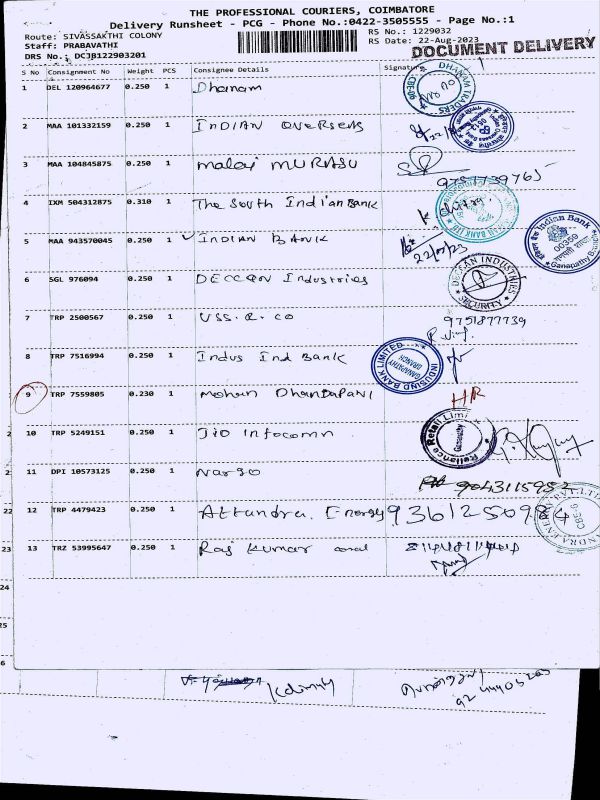 THE PROFESSIONAL COURIERS, COIMBATORE
Delivery Runsheet - PCG - Phone No.:0422-3505555 - Page No.:1
Route: SIVASSAKTHI COLONY RS No.: 1229032
Staff: PRABAVATHI RS Date: 22-Aug-2023
DRS No.: DCJB122903201 DOCUMENT DELIVERY
S No Consignment No Weight PCS Consignee Details Signature
1 DEL 120964677 0.250 1 Dhanam DHANAM TRADERS
2 MAA 101332159 0.250 1 INDIAN Overseas
3 MAA 104845875 0.250 1 malai MURASU
4 IXM 504312875 0.310 1 The South Indian Bank
5 MAA 943570045 0.250 1 INDIAN BANK Indian Bank 00359
6 SGL 976094 0.250 1 DECCAN Industries DECCAN INDUSTRIES SECURITY
7 TRP 2500567 0.250 1 VSS. & CO 9751877739
8 TRP 7516994 0.250 1 Indus Ind Bank INDUSIND BANK LIMITED GANAPATHY BRANCH
9 TRP 7559805 0.230 1 mohan Dhandapani HR
10 TRP 5249151 0.250 1 JIO Infocomm Reliance Retail Limited Ganapathy
11 DPI 10573125 0.250 1 Nargo 9043115952
22 12 TRP 4479423 0.250 1 Energy
23 13 TRZ 53995647 0.250 1 Raj kumar
24
25
6